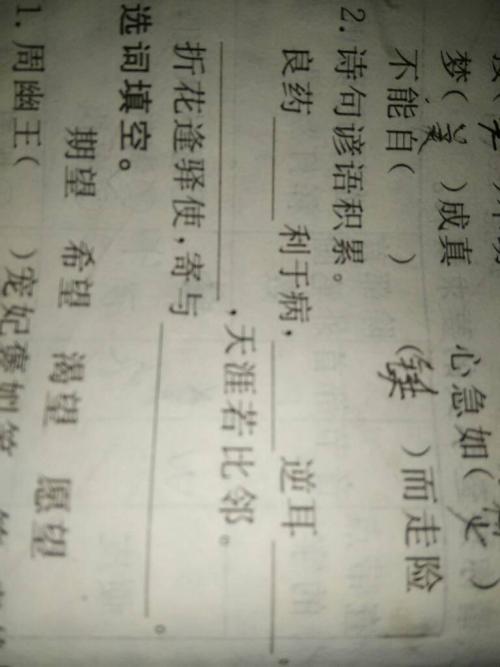 梦( 美 )成真 心急如( )
不能自( ) ( )而走险
2. 诗句谚语积累。
良药____利于病，____逆耳____。
____，天涯若比邻。
折花逢驿使，寄与____。
选词填空。
期望 希望 渴望 愿望
1. 周幽王( )宠妃褒姒笑